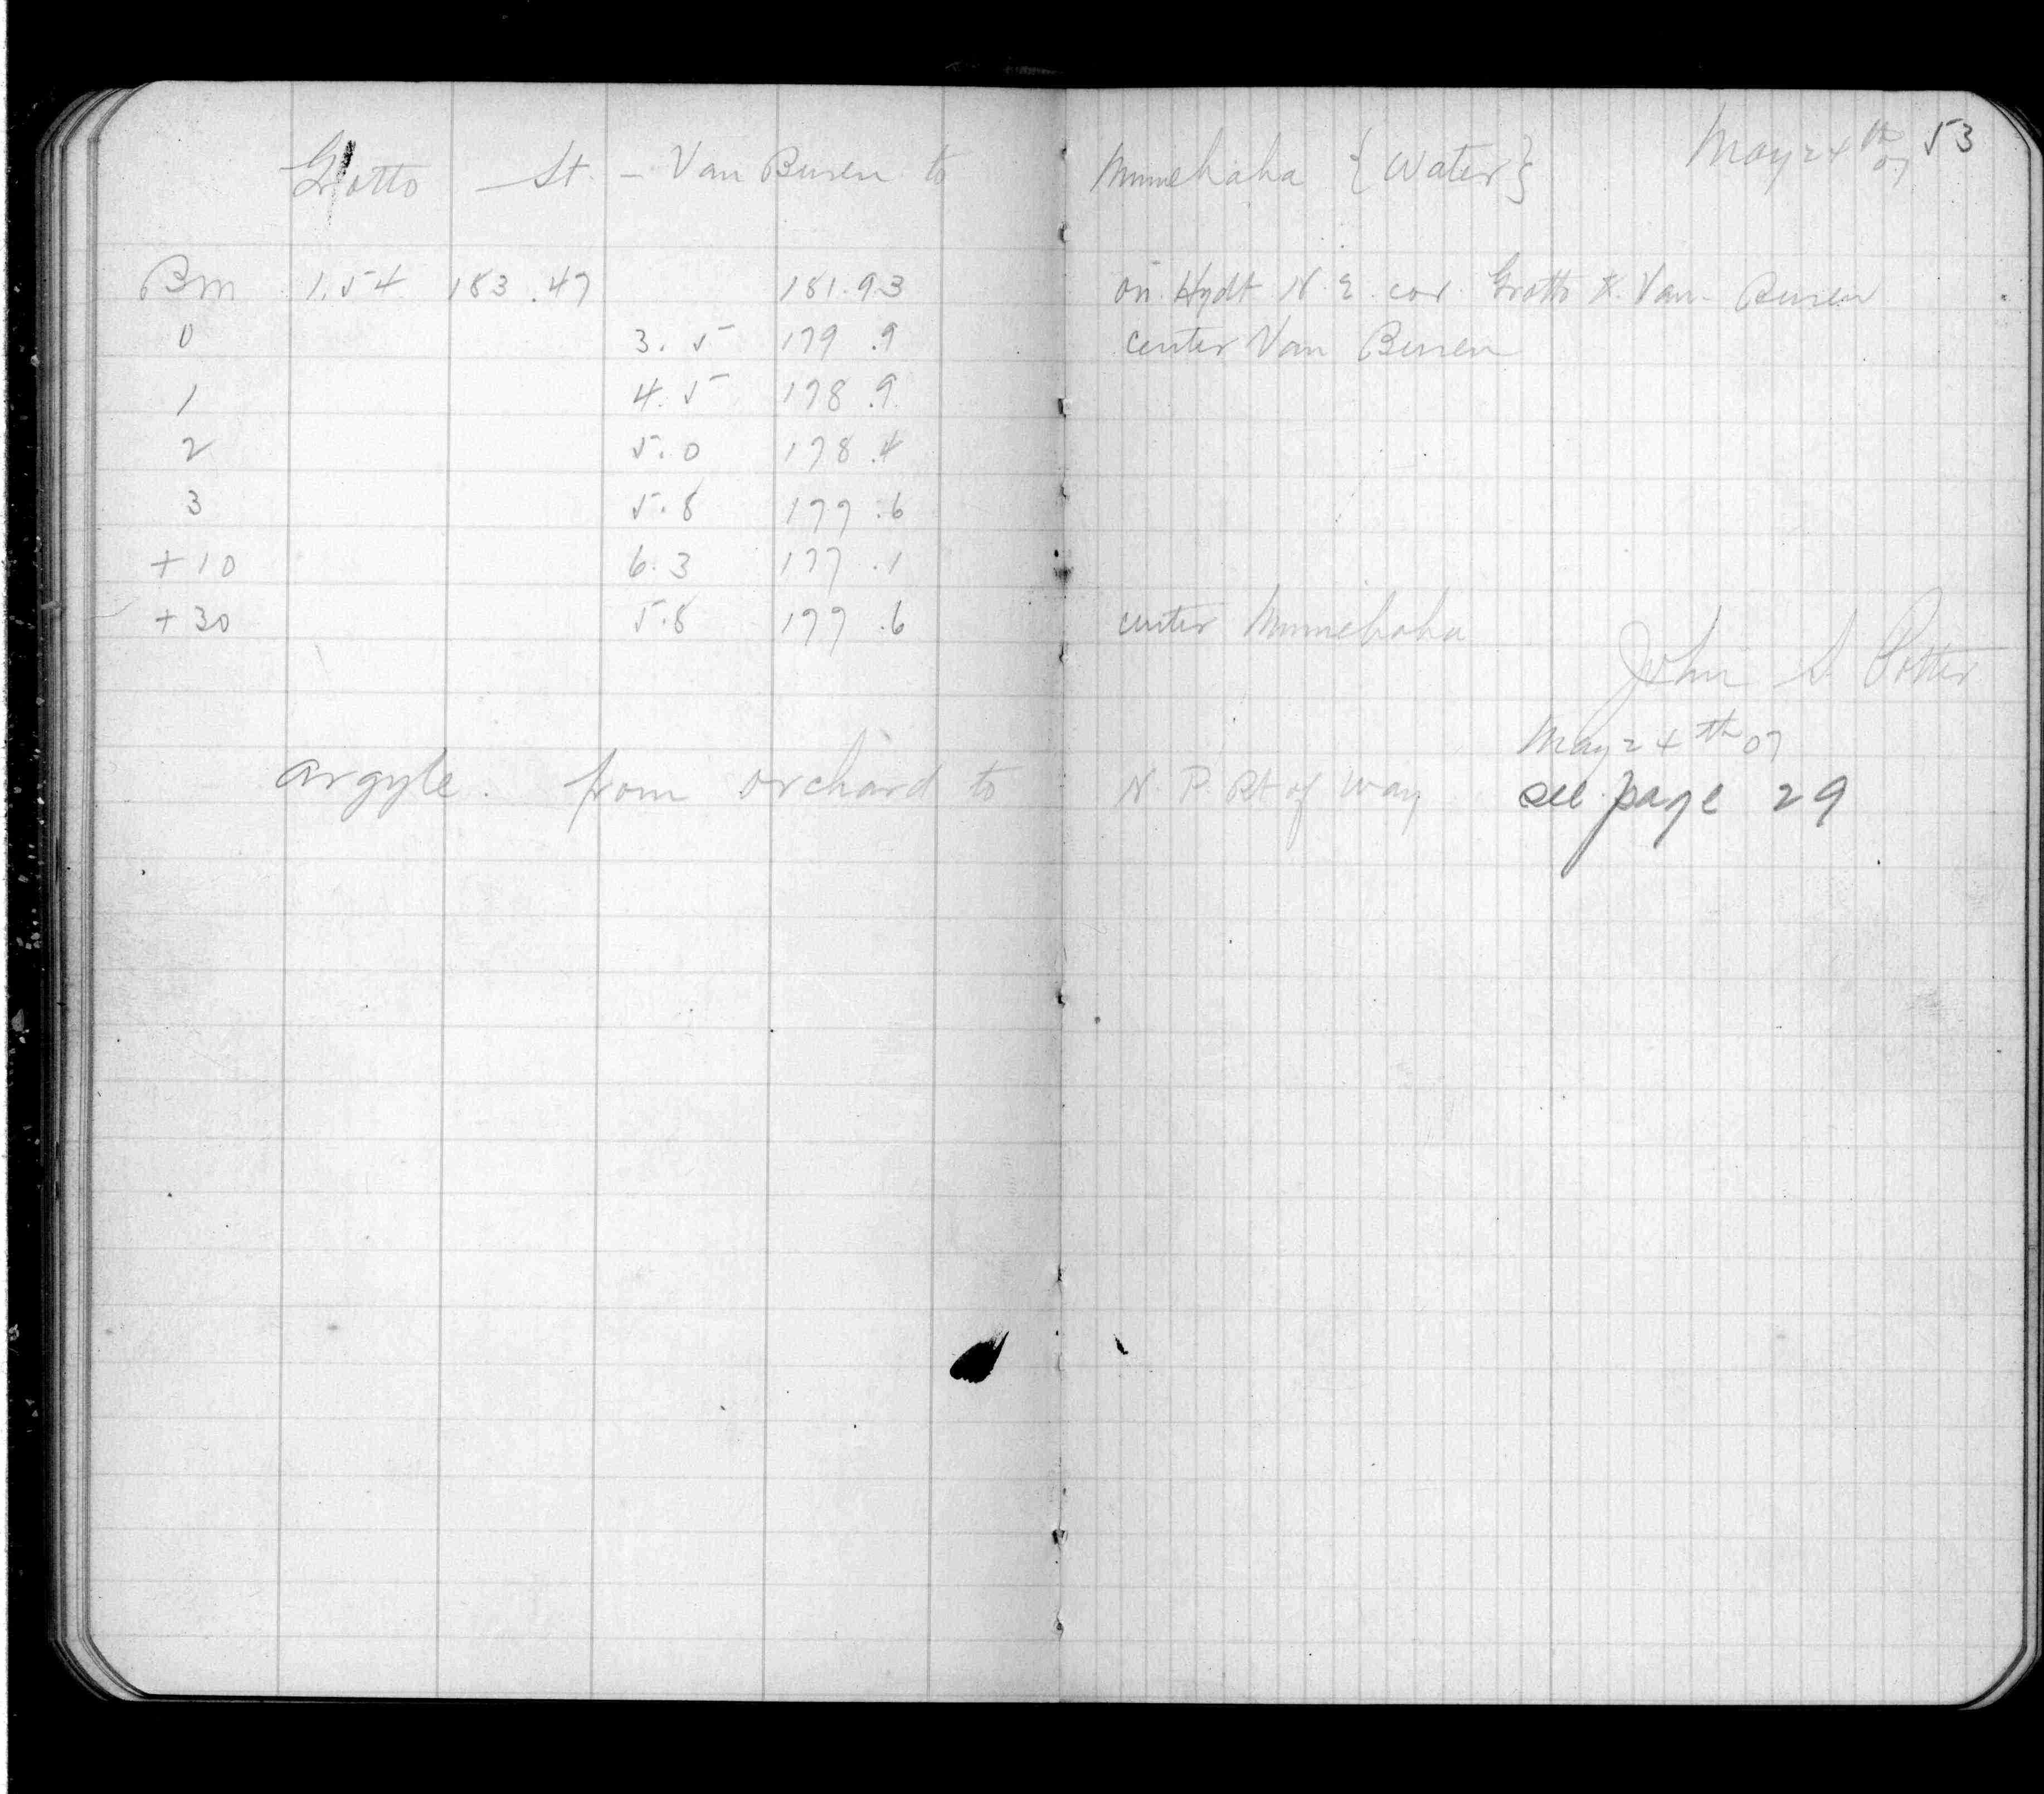 53
Grotto St. - Van Buren to Minnehaha {Water} May 24th 07
BM 1.54 183.47 181.93 on Hydt N.E. cor. Grotto & Van Buren
0 3.5 179.9 center Van Buren
1 4.5 178.9
2 5.0 178.4
3 5.8 177.6
+10 6.3 177.1
+30 5.8 177.6 center Minnehaha
John S Potter
May 24th 07
argyle. from orchard to N. P. Rt of Way see page 29